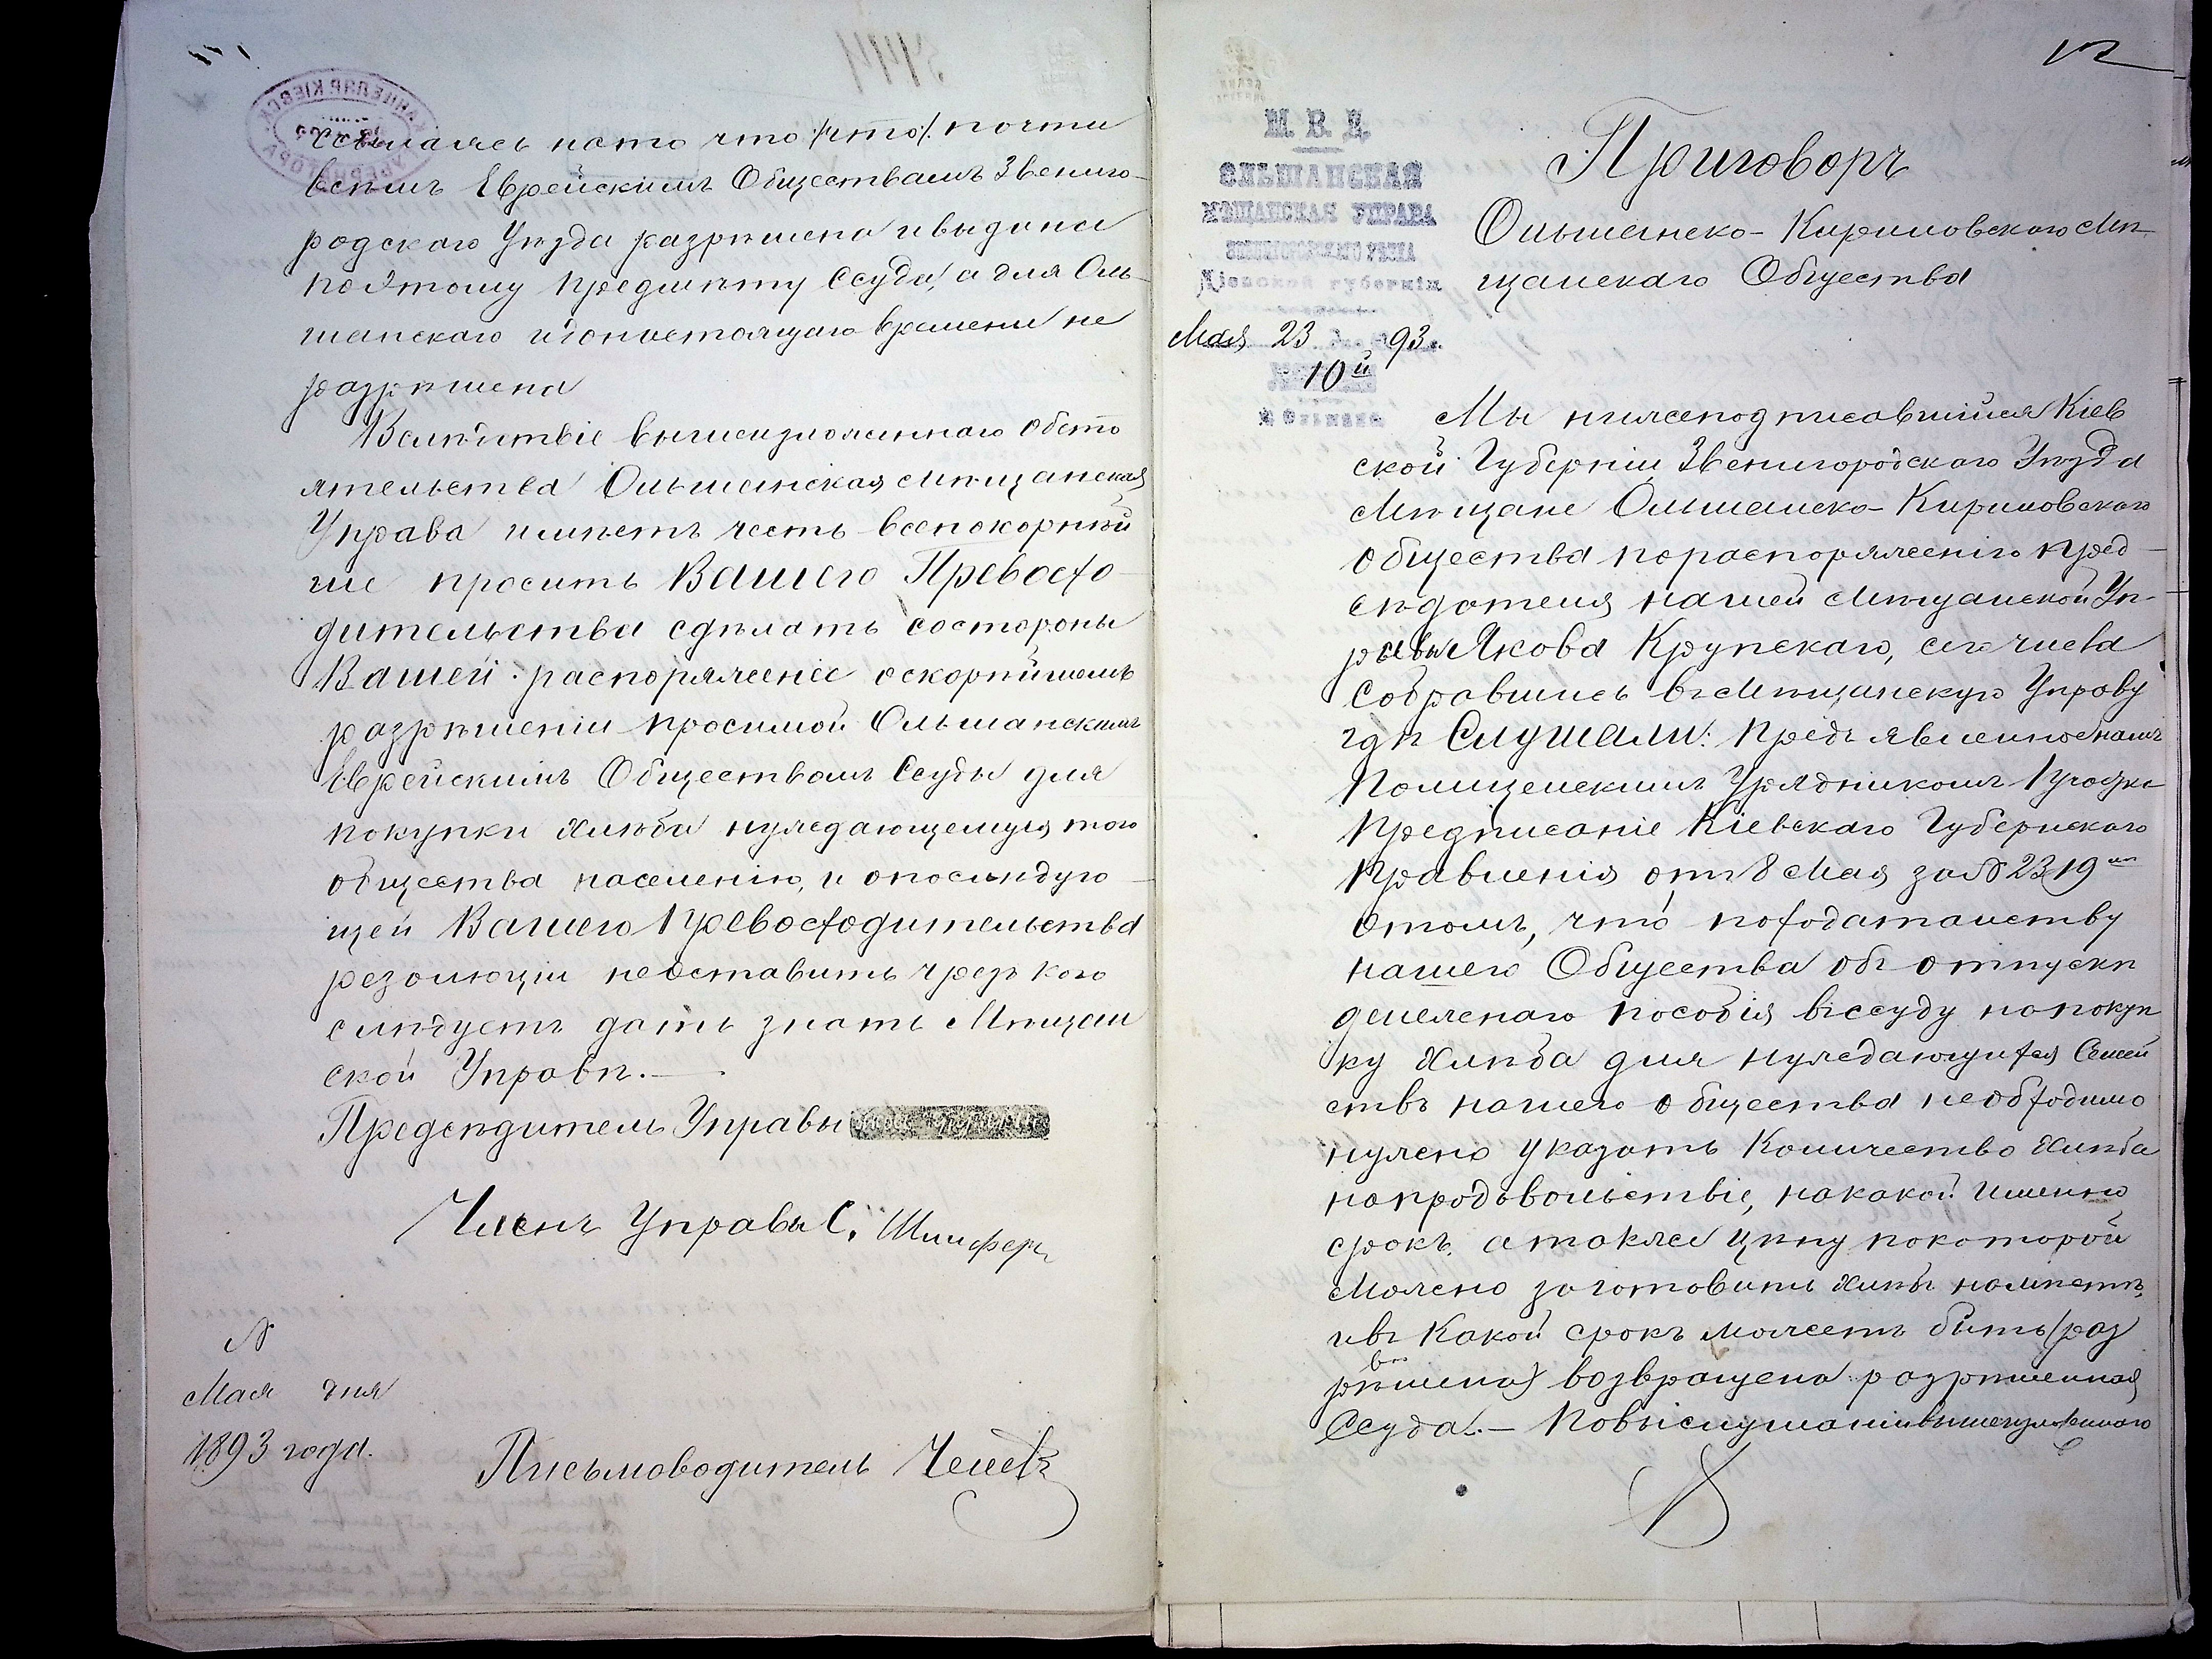 ссылаясь на то что /что/ почти
всѣмъ Еврейскимъ Обществамъ Звениго-
родскаго Уѣзда разрѣшена и выдана
по этому предмѣту ссуда, а для Оль-
шанскаго и до настоящаго времени не
разрѣшена
Вслѣдствіе вышеизложеннаго обсто
ятельства Ольшанская Мѣщанская
Управа имѣетъ честь всепокорнѣй
ше просить Вашего Превосхо-
дительства сдѣлать состороны
Вашей распоряженіе о скорѣйшемъ
разрѣшеніи просимой Ольшанскимъ
Еврейскимъ Обществомъ Ссуды для
покупки хлѣба нуждающемуся того
общества населенію, и о послѣдую-
щей Вашего Превосходительства
резолюціи неоставить чрезъ кого
слѣдуетъ дать знать Мѣщан
ской Управѣ.
Предсѣдитель Управы
Членъ Управы С. Шлиферъ
№
Мая дня
1893 года.
Письмоводитель
12
М. В. Д.
ОЛЬШАНСКАЯ
МѢЩАНСКАЯ УПРАВА
ЗВЕНИГОРОДСКАГО УѢЗДА
Кіевской губерніи
Мая 23 дня 1893 г.
10й
М. Ольшана
Приговоръ
Ольшанско-Кириловскаго Мѣ-
щанскаго Общества
Мы нижеподписавшійся Кіев
ской Губерніи Звенигородскаго Уѣзда
Мѣщане Ольшанско-Кириловскаго
общества по распоряженію пред-
сѣдателя нашей Мѣщанской Уп-
равы Якова Крупскаго, сего числа
собравшись въ Мѣщанскую Управу
гдѣ Слушали: предъявленное намъ
Полицейскимъ Урядникомъ 1 участка
Предписаніе Кіевскаго Губернскаго
Правленія отъ 8 Мая за № 2319мъ
о томъ, что по ходатайству
нашего Общества объ отпускѣ
денежнаго пособія въ ссуду на покуп
ку хлѣба для нуждающихся Семей
ствъ нашего общества необходимо
нужно указать Количество хлѣба
на продовольствіе, на какой именно
срокъ, а также цѣну по которой
Можно заготовить хлѣбъ на мѣстѣ,
и въ Какой срокъ можетъ быть (раз
рѣшена) возвращена разрѣшенная
Ссуда.— По выслушаніи вышеизложеннаго